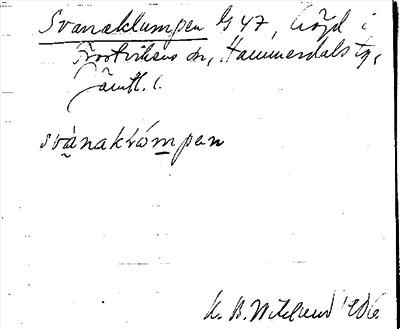 Svanaklumpen G 47, höjd i
Brotvikens sn, Hammerdals tg,
Jämtl. l.
svánakrómpen
K. B. Wiklund 1906